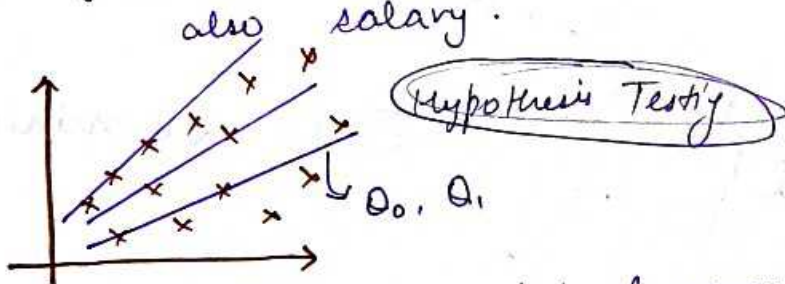 also salary.
Hypothesis Testig
θ₀, θ₁